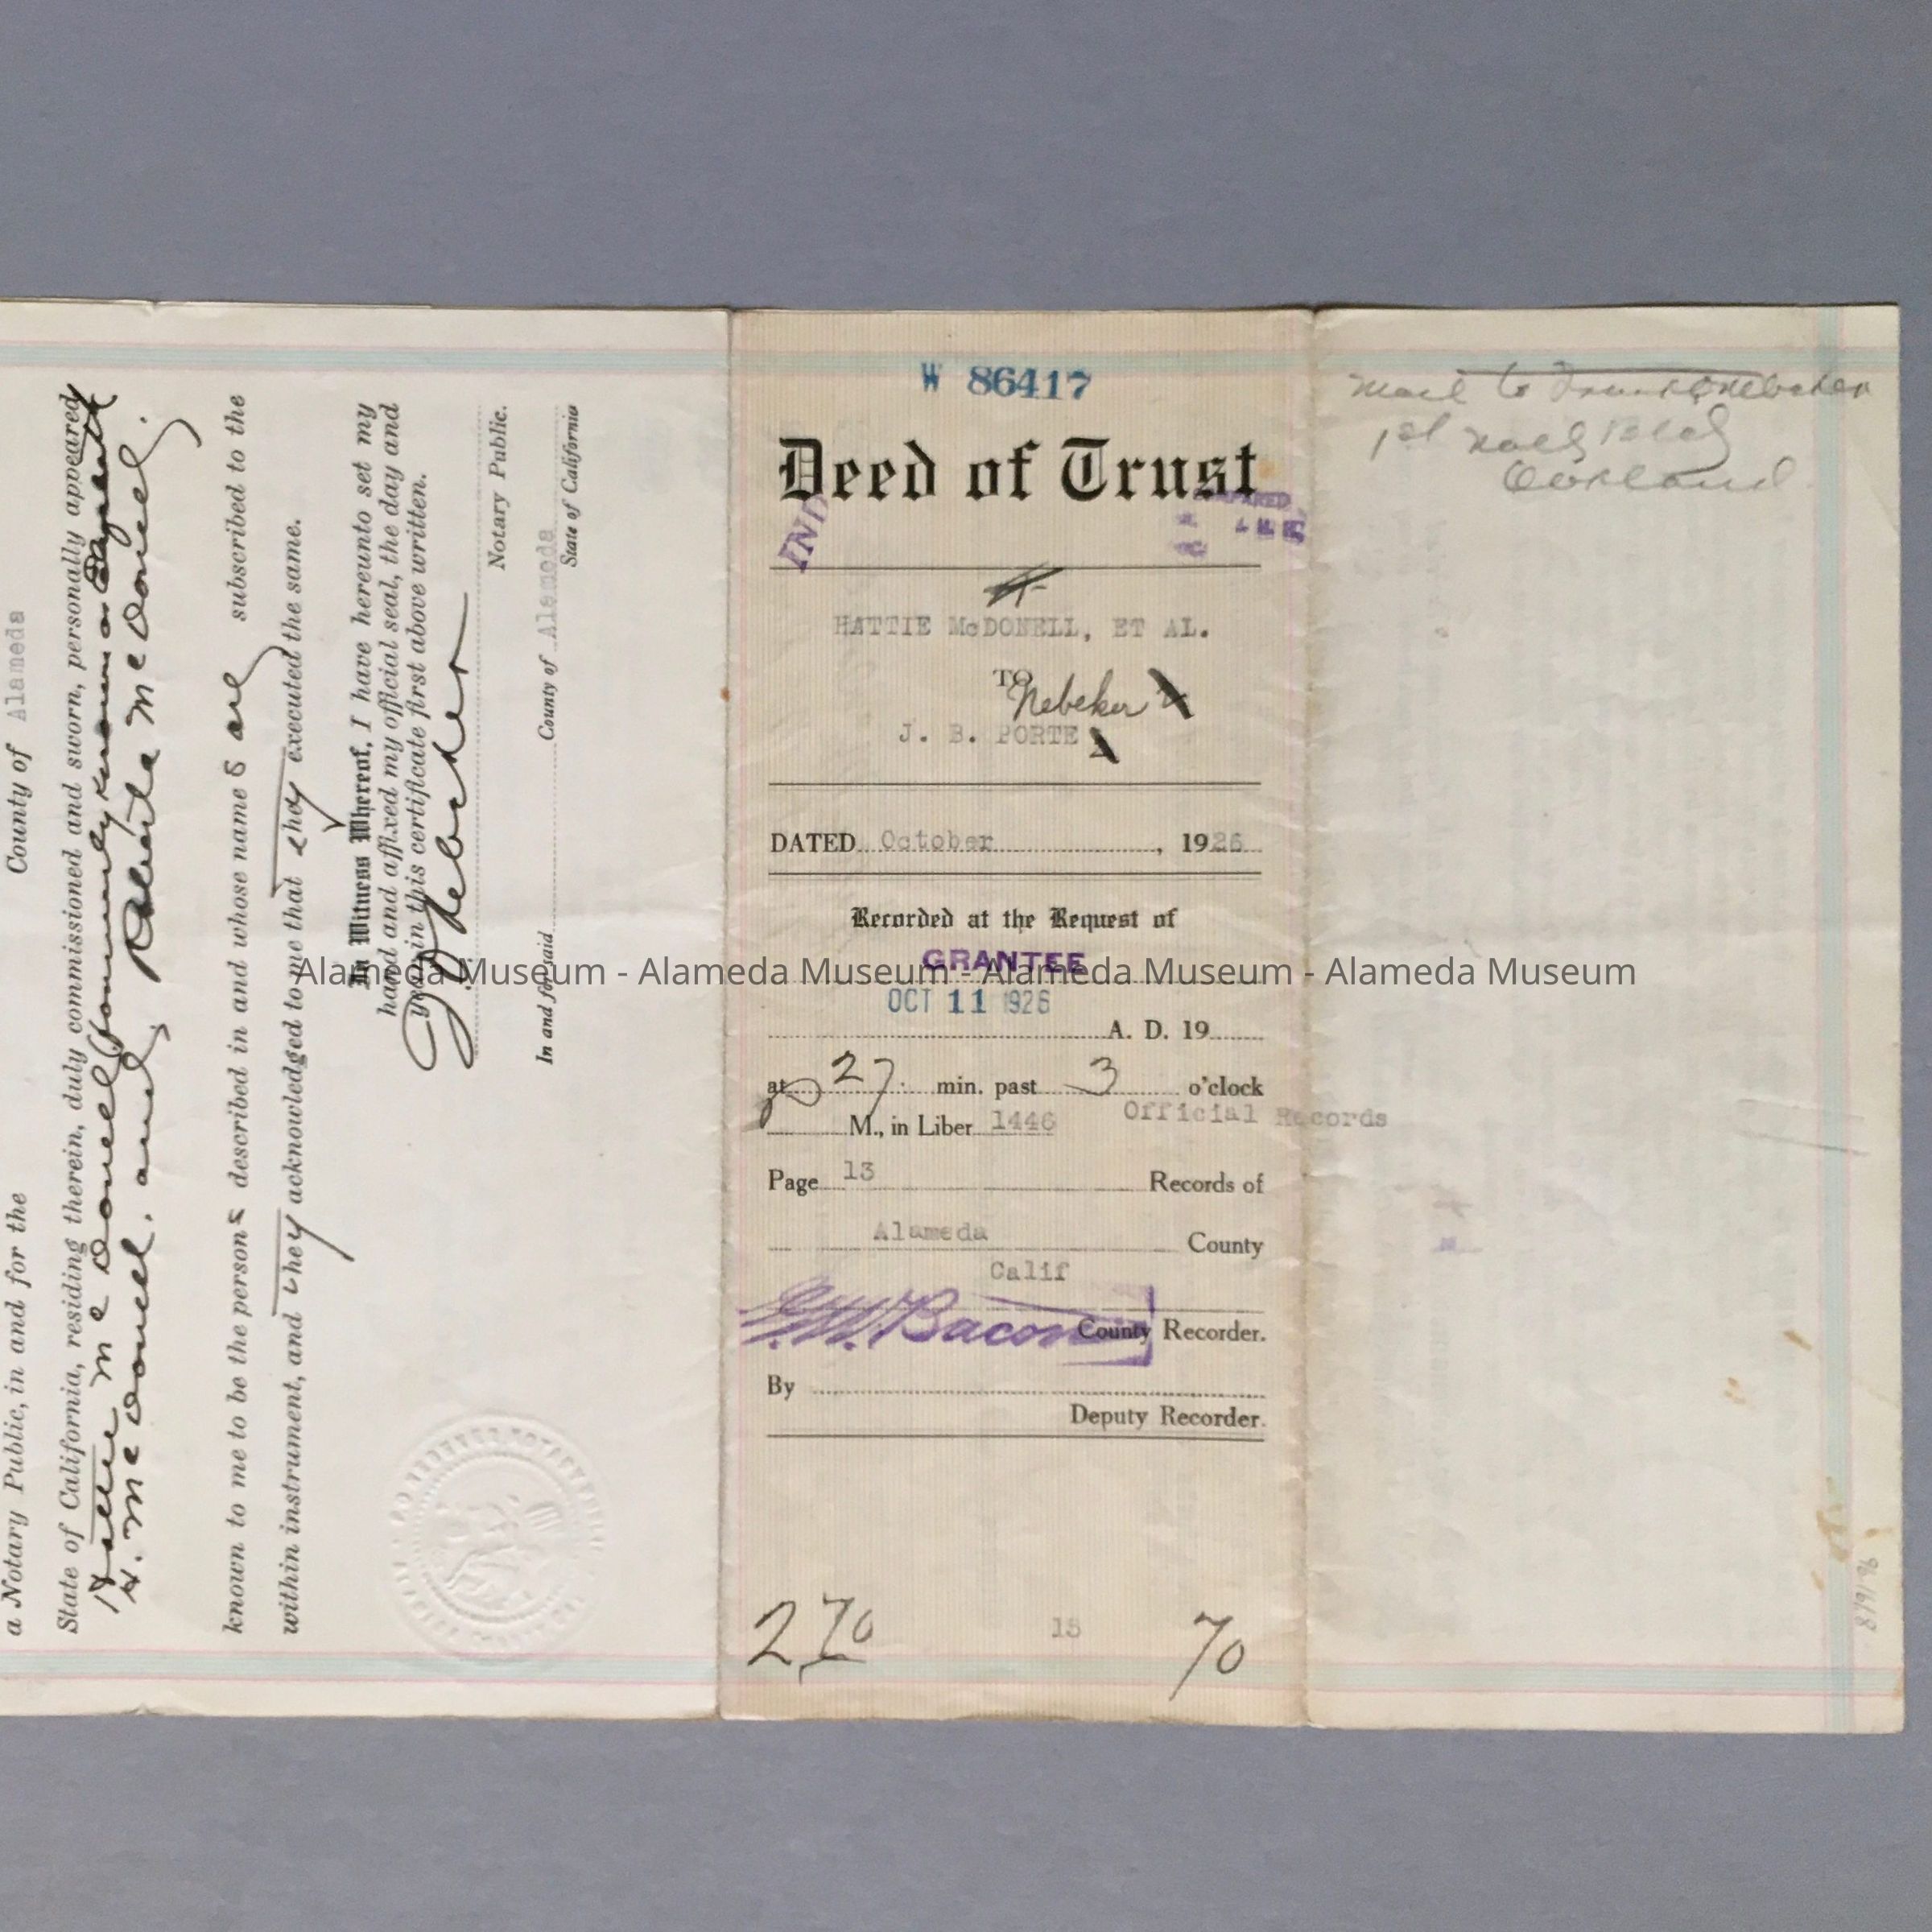 County of Alameda
a Notary Public, in and for the
State of California, residing therein, duly commissioned and sworn, personally appeared
Hattie McDonell
H. McDonell. and Roberta McDonell.
known to me to be the persons described in and whose names are subscribed to the
within instrument, and they acknowledged to me that they executed the same.
In Witness Whereof, I have hereunto set my
hand and affixed my official seal, the day and
year in this certificate first above written.
Nebeker
Notary Public.
In and for said County of Alameda State of California
W 86417
Deed of Trust
IND
HATTIE McDONELL, ET AL.
TO
Nebeker
J. B. PORTE
DATED October, 1926
Recorded at the Request of
GRANTEE
OCT 11 1926
A. D. 19
at 27 min. past 3 o'clock
P M., in Liber 1446 Official Records
Page 13 Records of
Alameda County
Calif
G.W. Bacon County Recorder.
By
Deputy Recorder.
2 70 13 70
Mail to Frank Nebeker
1st Natl Bldg
Oakland
8/9/96
Alameda Museum - Alameda Museum - Alameda Museum - Alameda Museum